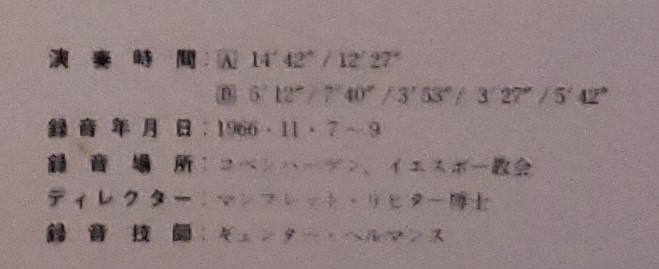 演奏時間：A 14′42″/12′27″
B 5′12″/7′40″/3′53″/3′27″/5′42″
録音年月日：1966・11・7〜9
録音場所：コペンハーゲン、イエスボー教会
ディレクター：マンフレット・リヒター博士
録音技師：ギュンター・ヘルマンス